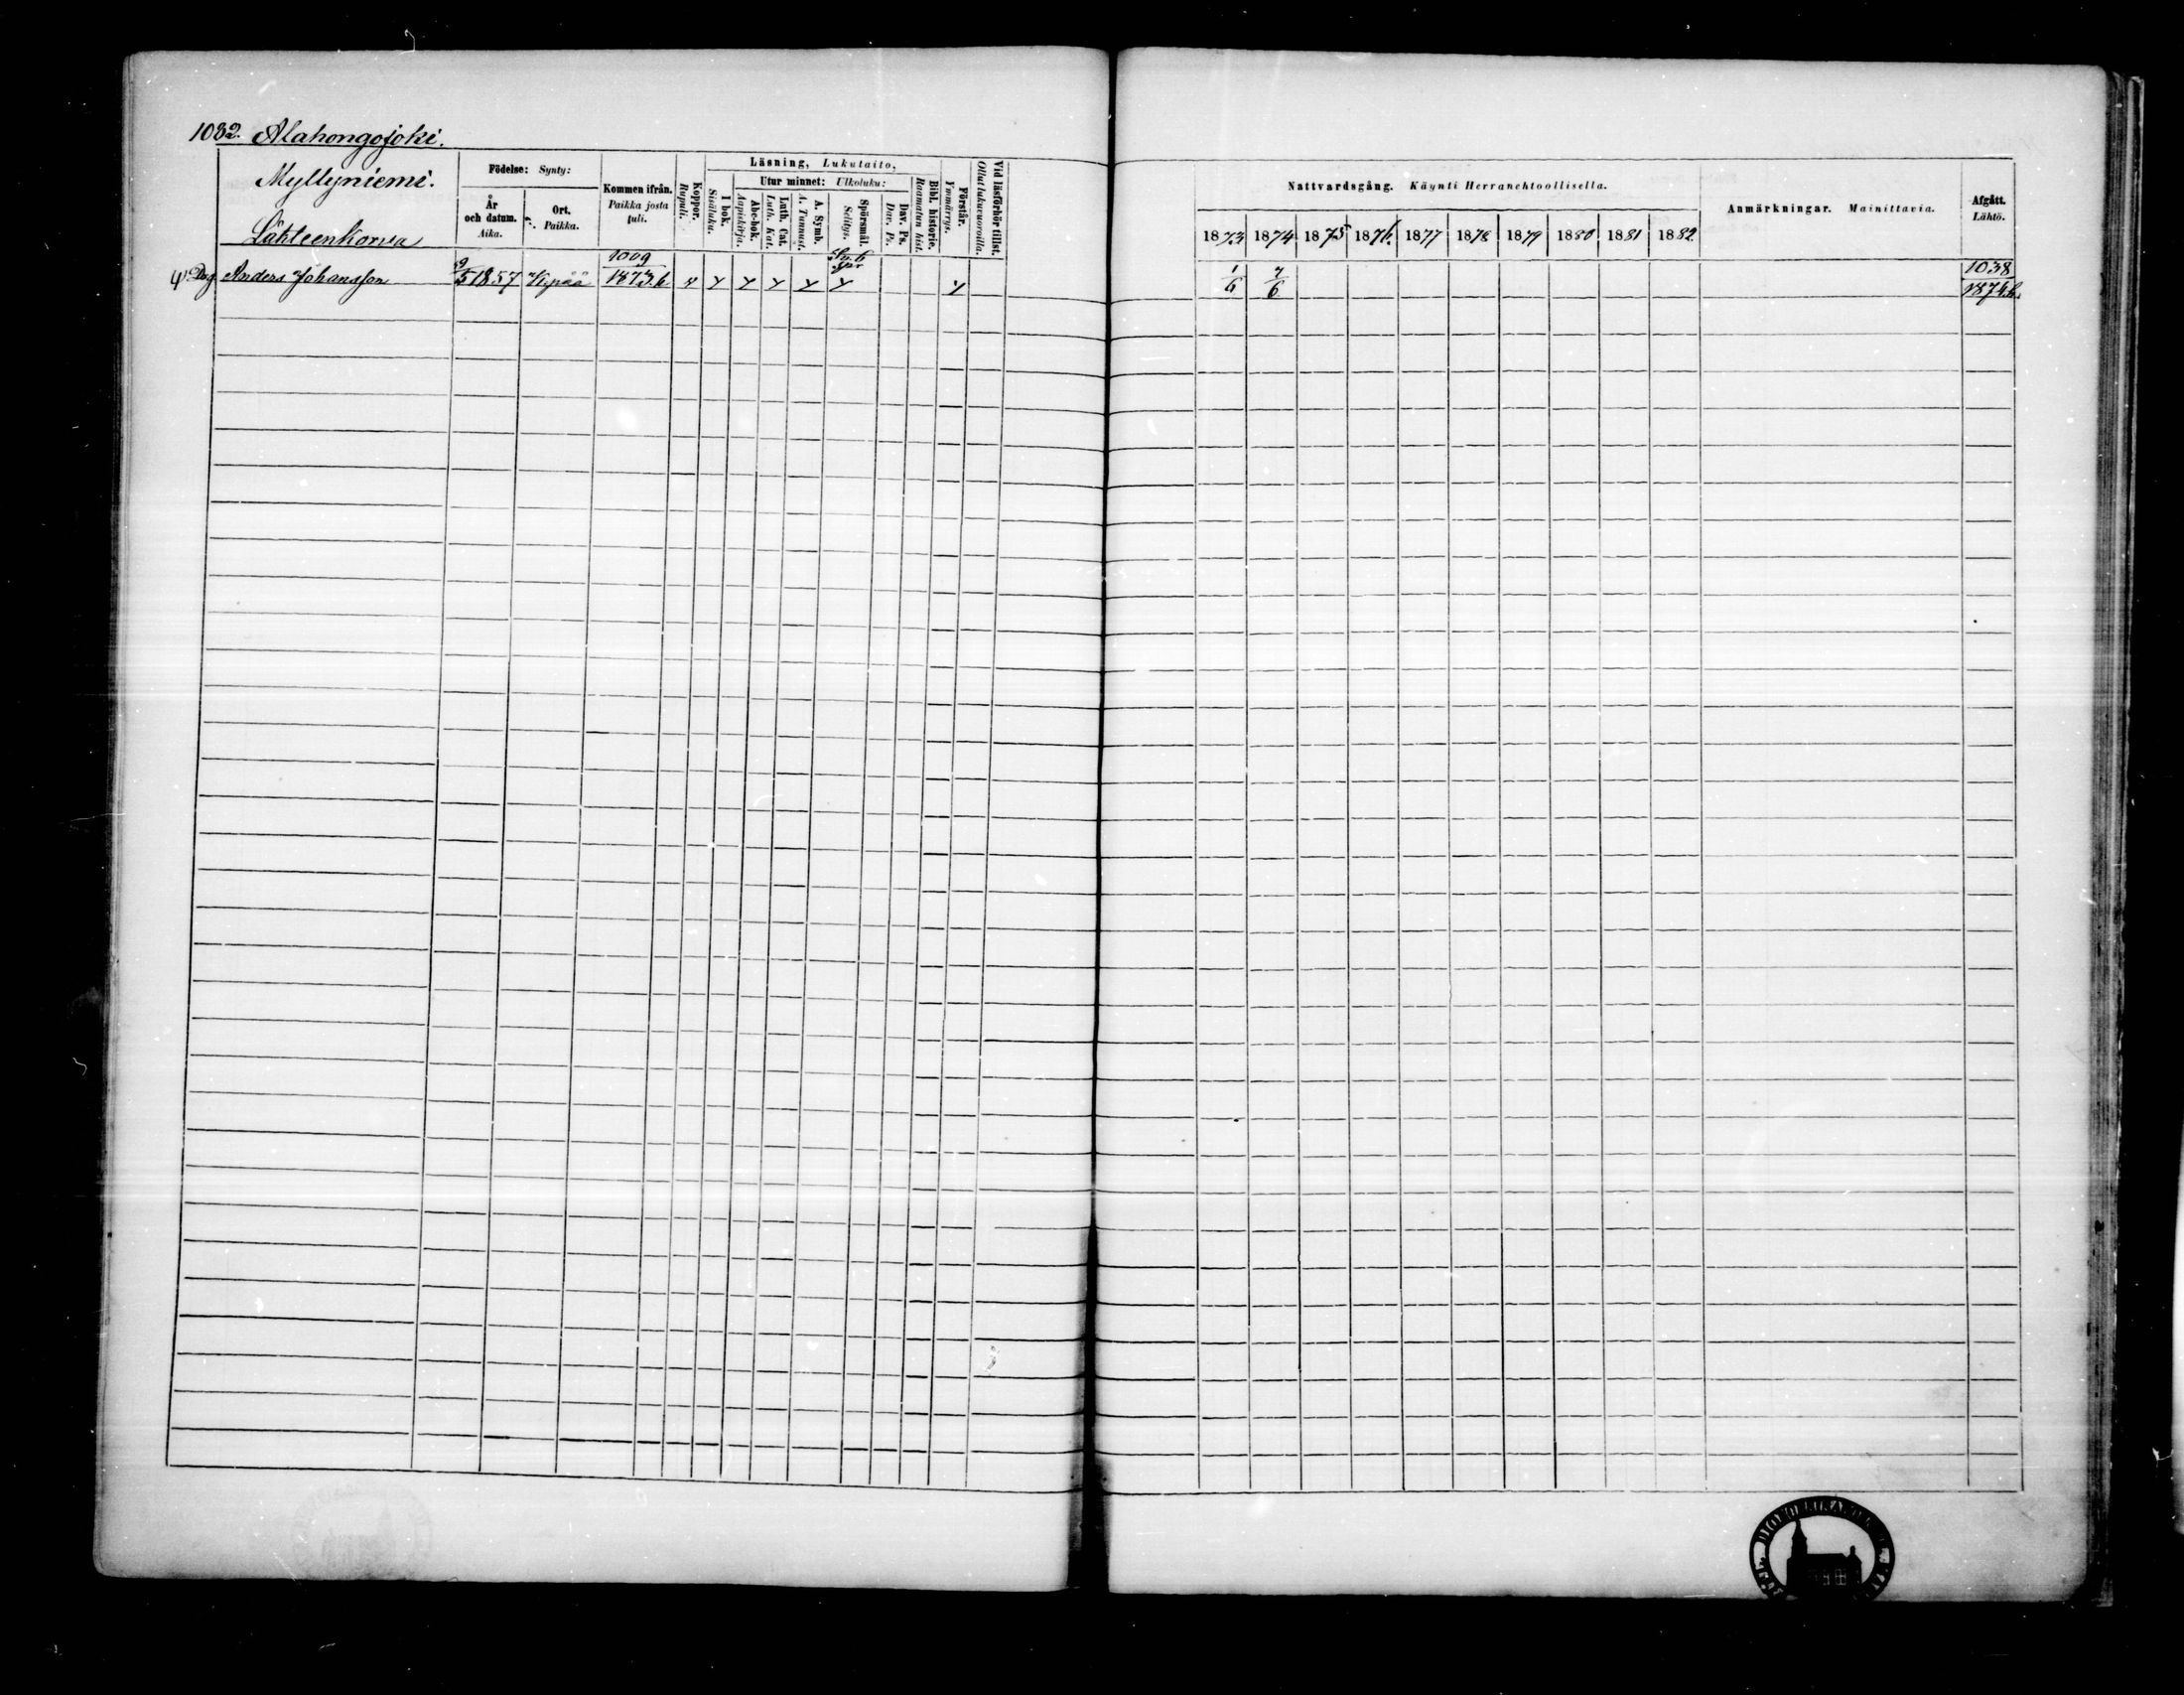 1032. Alahongojoki.
Myllyniemi.
Lähteenkorva
Födelse: Synty:
År och datum. Aika.
Ort. Paikka.
Kommen ifrån. Paikka josta tuli.
Koppor. Rupuli.
Läsning, Lukutaito,
I bok. Sisäluku.
Utur minnet: Ulkoluku:
Abc-bok. Aapiskirja.
Luth. Cat. Luth. Kat.
A. Symb. A. Tunnust.
Spörsmål. Selitys.
Dav. Ps. Dav. Ps.
Bibl. historie. Raamatun hist.
Förstår. Ymmärrys.
Vid läsförhör tillst. Ollut lukuvuoroilla.
Nattvardsgång. Käynti Herranehtoollisella.
1873 1874 1875 1876 1877 1878 1879 1880 1881 1882
Anmärkningar. Mainittavia.
Afgått. Lähtö.
Anders Johansson 9/5 1857 1009/1873.6 1/6 7/6 1038/1874.6.